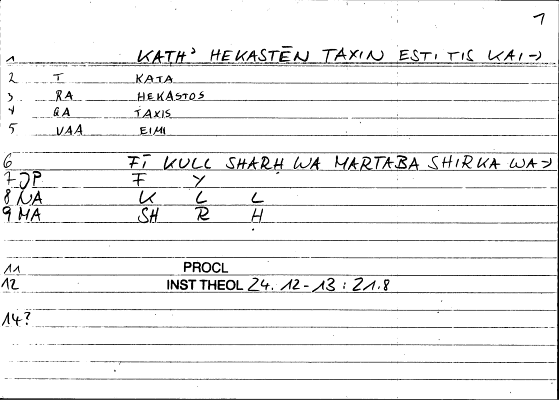 1
1 KATH' HEKASTĒN TAXIN ESTI TIS KAI→
2 T KATA
3 RA HEKASTOS
4 QA TAXIS
5 VAA EIMI
6 FĪ KULL SHARḤ WA MARTABA SHIRKA WA→
7 JP F Y
8 NA K L L
9 MA SH R Ḥ
11 PROCL
12 INST THEOL 24.12-13:21.8
14?